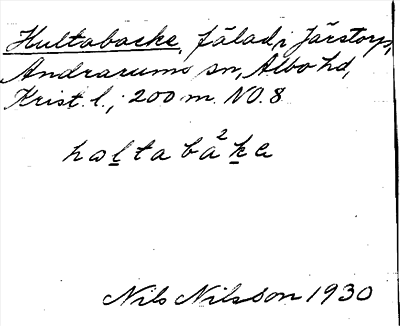 Hultabacke, fälad i Järstorp,
Andrarums sn, Albo hd,
Krist. l., 200 m. NO. 8
hɷltabà²ke
Nils Nilsson 1930